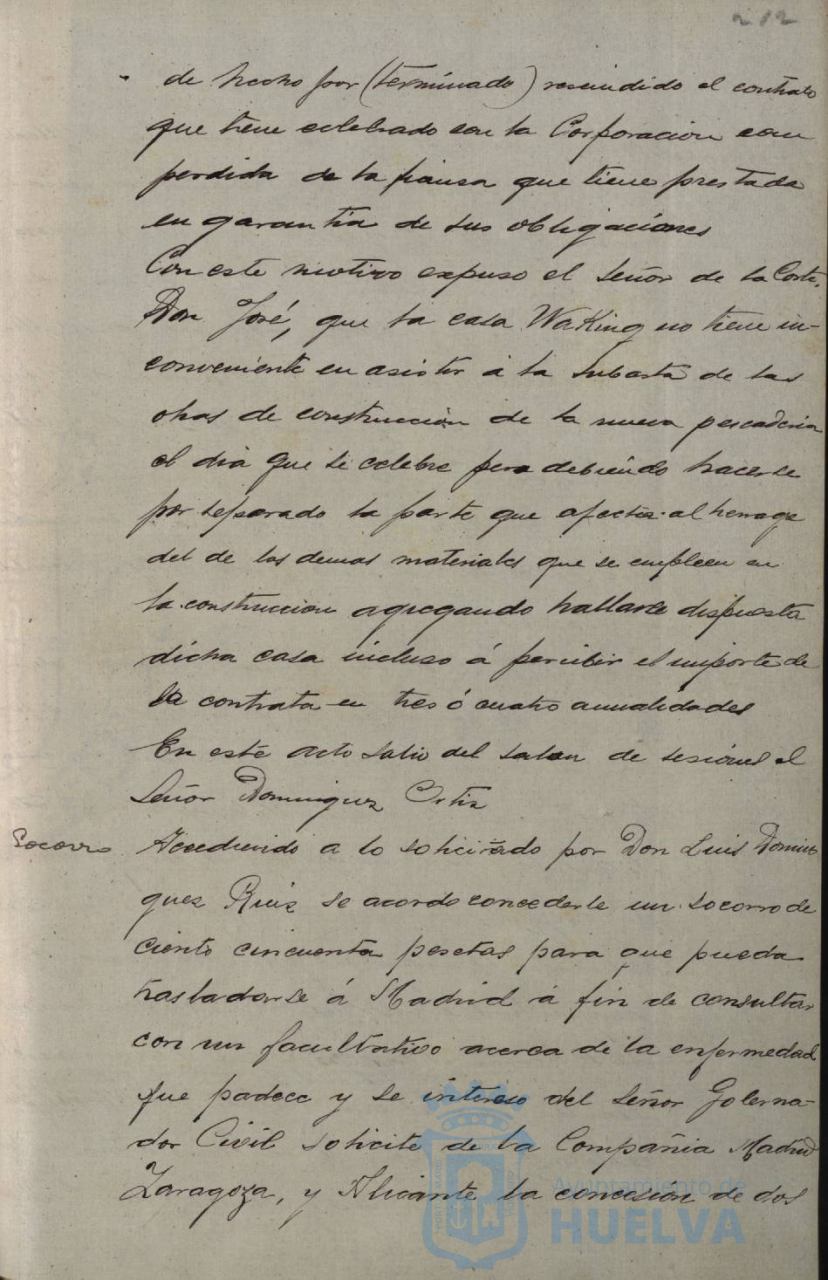 212
de hecho por (terminado) rescindido el contrato
que tiene celebrado con la Corporacion con
perdida de la fianza que tiene prestada
en garantia de sus obligaciones
Con este motivo expuso el Señor de la Corte,
Don José, que la casa WaKing no tiene in-
conveniente en asistir á la subasta de las
obras de construcción de la nueva pescaderia
el dia que se celebre pero debiendo hacerse
por separado la parte que afecta al herrage
del de los demas materiales que se empleen en
la construccion agregando hallarse dispuesta
dicha casa incluso á percibir el importe de
la contrata en tres ó cuatro anualidades
En este acto salio del salon de sesiones el
Señor Dominguez Ortiz
Socorro
Accediendo a lo solicitado por Don Luis Domin
guez Ruiz se acordo concederle un socorro de
ciento cincuenta pesetas para que pueda
trasladarse á Madrid á fin de consultar
con un facultativo acerca de la enfermedad
que padece y se interese del Señor Goberna-
dor Civil solicite de la Compañia Madrid
Zaragoza, y Alicante la concesion de dos
Ayuntamiento de
HUELVA